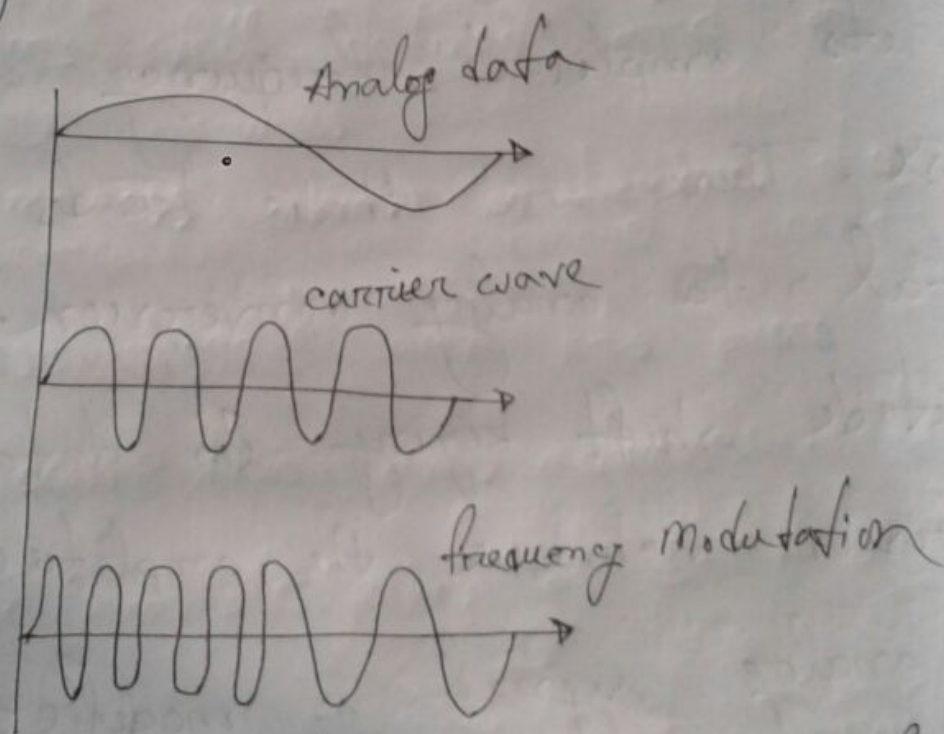 Analog data
carrier wave
frequency modutation